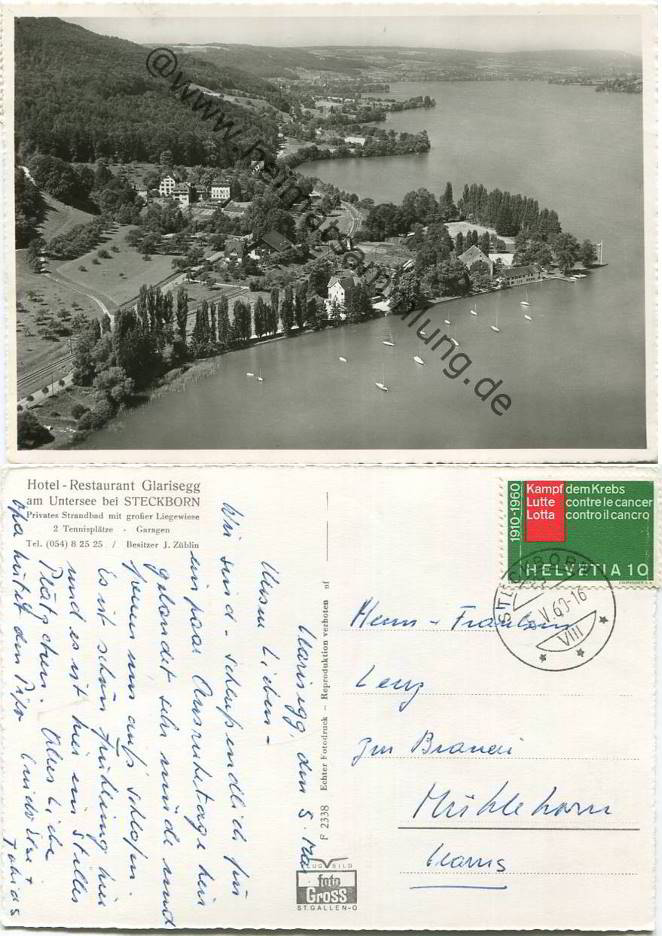 @www.heimatsammlung.de
Hotel-Restaurant Glarisegg
am Untersee bei STECKBORN
Privates Strandbad mit großer Liegewiese
2 Tennisplätze - Garagen
Tel. (054) 8 25 25 / Besitzer J. Züblin
Glarisegg, den 5. Mai
Unsere Lieben -
Wir sind - schlussendlich für
ein paar Ausruhetage hier
gelandet, sehr müde und
freuen uns aufs Schlafen.
Es ist schön Frühling hier
und es ist hier ein stilles
Plätzchen. Alles Liebe
Opa hütet den Pipo
Tobias
F 2338 Echter Fotodruck - Reproduktion verboten
1910-1960
Kampf dem Krebs
Lutte contre le cancer
Lotta contro il cancro
HELVETIA 10
STECKBORN
V. 60-16
VIII
Herrn - Fräulein
Lenz
zur Brauerei
Mühlehorn
Glarus
FLUGBILD
foto
GROSS
ST. GALLEN-O